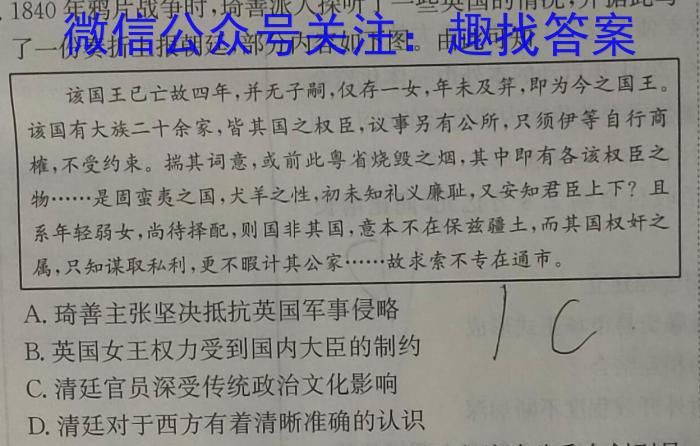 1840年鸦片战争时,琦善派人探听了一些英国的情况,并据此写
了一份奏折上报朝廷,部分内容如下图。由此可知
微信公众号关注：趣找答案
该国王已亡故四年,并无子嗣,仅存一女,年未及笄,即为今之国王。
该国有大族二十余家,皆其国之权臣,议事另有公所,只须伊等自行商
榷,不受约束。揣其词意,或前此粤省烧毁之烟,其中即有各该权臣之
物……是固蛮夷之国,犬羊之性,初未知礼义廉耻,又安知君臣上下？且
系年轻弱女,尚待择配,则国非其国,意本不在保兹疆土,而其国权奸之
属,只知谋取私利,更不暇计其公家……故求索不专在通市。
A. 琦善主张坚决抵抗英国军事侵略
B. 英国女王权力受到国内大臣的制约
C. 清廷官员深受传统政治文化影响
D. 清廷对于西方有着清晰准确的认识
1C